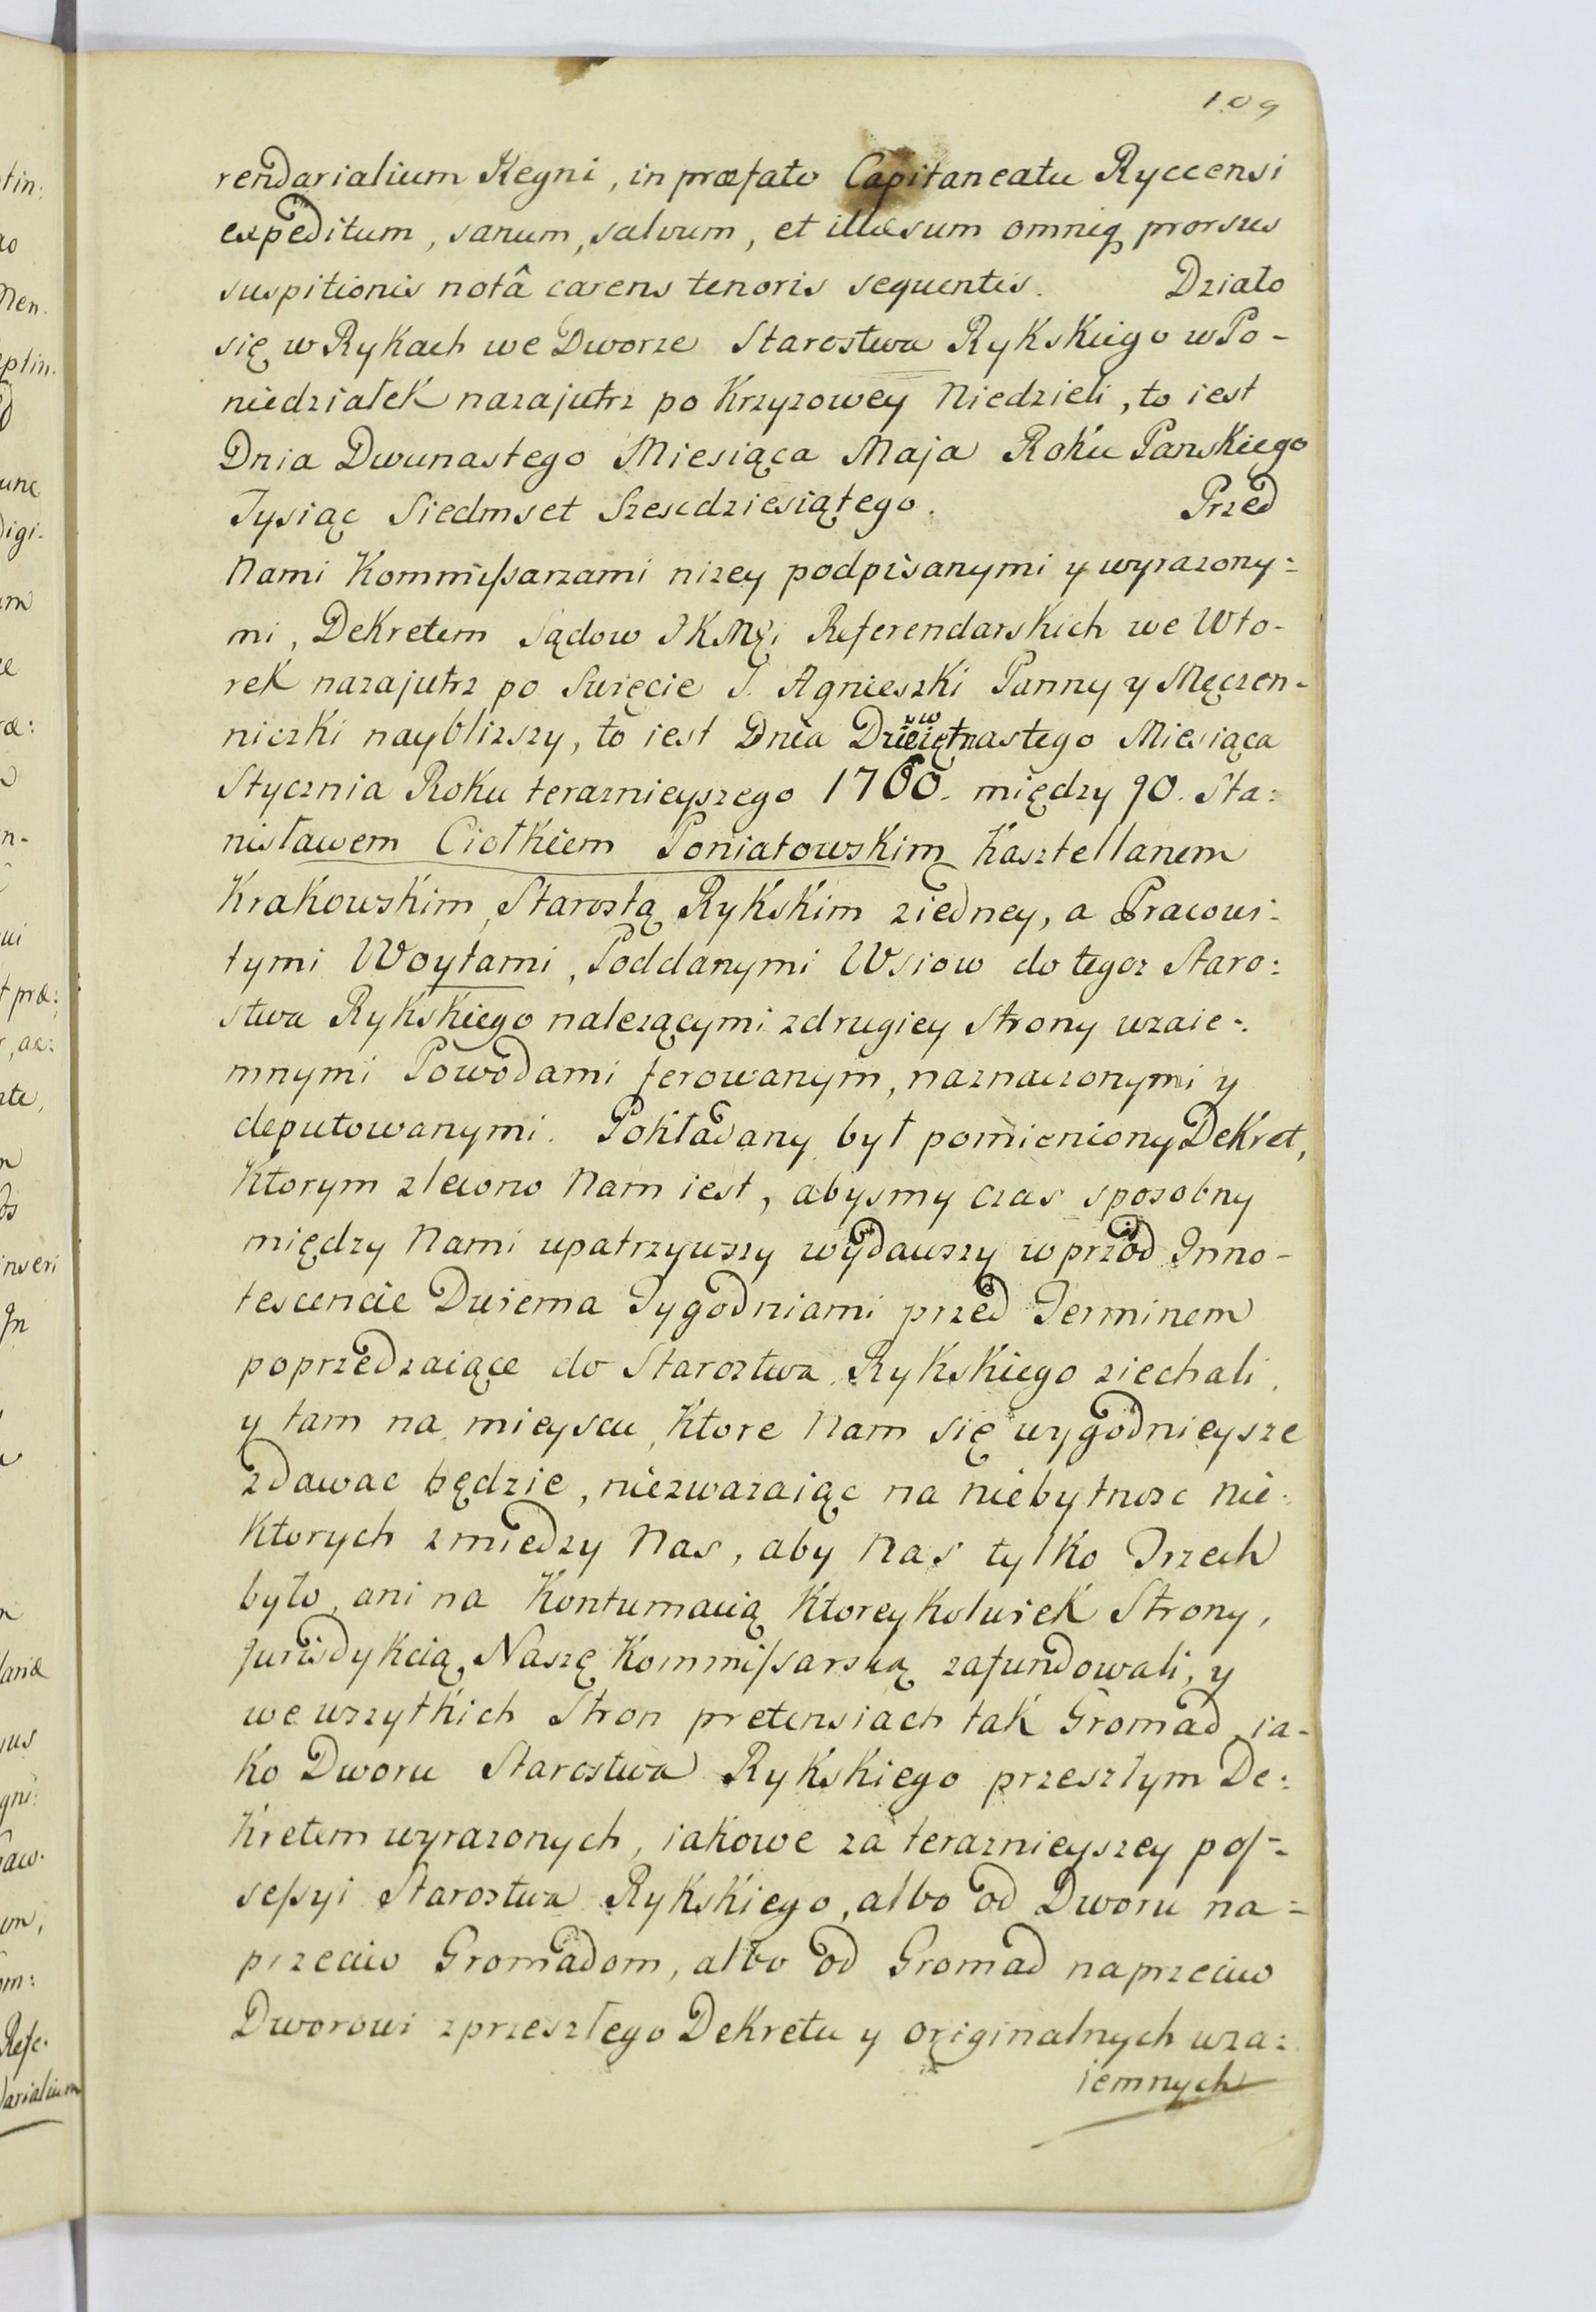 109
rendarialium Regni, in præfato Capitaneatu Ryccensi
expeditum, sanum, salvum, et illæsum omniq prorsus
suspitionis notâ carens tenoris sequentis. Działo
się w Rykach we Dworze Starostwa Rykskiego w Po-
niedziałek nazajutrz po Krzyzowey Niedzieli, to iest
Dnia Dwunastego Miesiąca Maja Roku Panskiego
Tysiąc Siedmset Szescdziesiątego. Przed
Nami Kommissarzami nizey podpisanymi y wyrazony:
mi, Dekretem Sądow JKMęi Referendarskich we Wto-
rek nazajutrz po Swięcie S. Agnieszki Panny y Męczen-
niczki nayblizszy, to iest Dnia Dziewiętnastego Miesiąca
Stycznia Roku teraznieyszego 1760. między JO. Sta:
nisławem Ciołkiem Poniatowskim Kasztellanem
Krakowskim, Starostą Rykskim ziedney, a Pracowi:
tymi Woytami, Poddanymi Wsiow do tegoz Staro:
stwa Rykskiego nalezącymi zdrugiey strony wzaie-:
mnymi Powodami ferowanym, naznaczonymi y
deputowanymi. Pokładany był pomieniony Dekret,
Ktorym zlecono Nam iest, abysmy czas sposobny
między Nami upatrzywszy wydawszy wprzod Inno-
tescencie Dwiema Tygodniami przed Terminem
poprzedzaiące do Starostwa Rykskiego ziechali,
y tam na mieyscu, Ktore Nam się wygodnieysze
zdawac będzie, niezwazaiąc na niebytnosc nie:
Ktorych zmiedzy Nas, aby Nas tylko Trzech
było, ani na Kontumacią Ktoreykolwiek Strony,
Jurisdykcią Naszę Kommissarską zafundowali, y
we wszytkich Stron pretensiach tak Gromad, ia-
ko Dworu Starostwa Rykskiego przeszłym De:
kretem wyrazonych, iakowe za teraznieyszey pos-:
sessyi Starostwa Rykskiego, albo od Dworu na:
przeciw Gromadom, albo od Gromad naprzeciw
Dworowi zprzeszłego Dekretu y originalnych wza:
iemnych